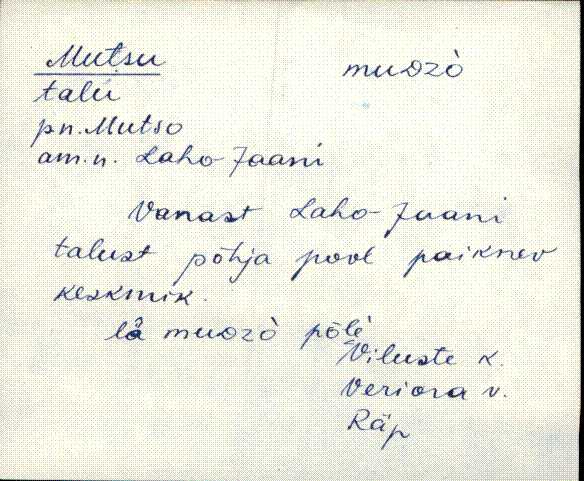 Mutsu muᴅzò
talu
pn. Mutso
am.n. Laho-Jaani
Vanast Laho-Juani
talust põhja pool paiknev
keskmik.
lǟ muᴅzò põlè
Viluste k.
Veriora v.
Räp